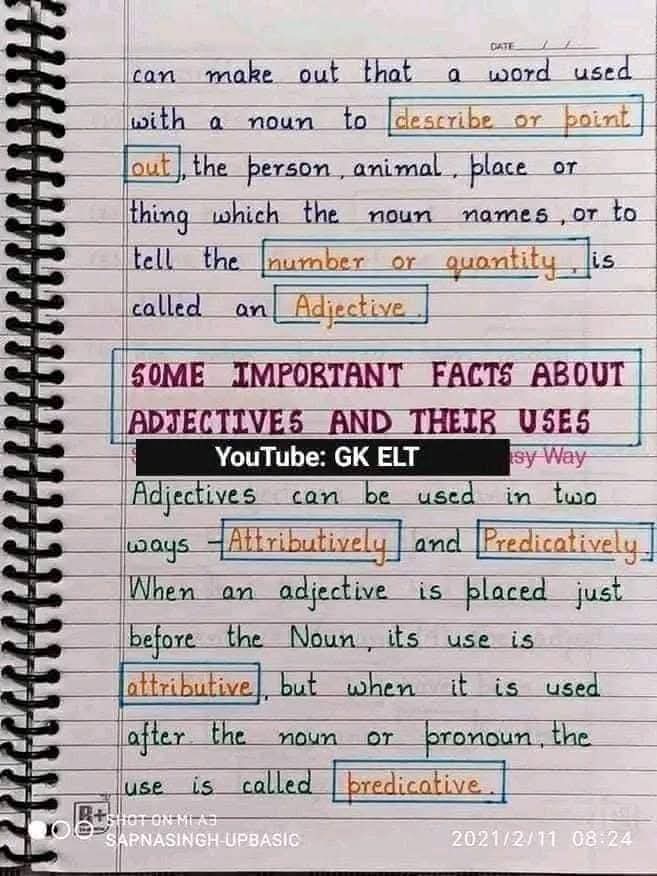 DATE / /
can make out that a word used
with a noun to describe or point
out, the person, animal, place or
thing which the noun names, or to
tell the number or quantity, is
called an Adjective.
SOME IMPORTANT FACTS ABOUT
ADJECTIVES AND THEIR USES
YouTube: GK ELT asy Way
Adjectives can be used in two
ways - Attributively and Predicatively.
When an adjective is placed just
before the Noun, its use is
attributive, but when it is used
after the noun or pronoun, the
use is called predicative.
B+
SHOT ON MI A3
SAPNASINGH-UPBASIC 2021/2/11 08:24